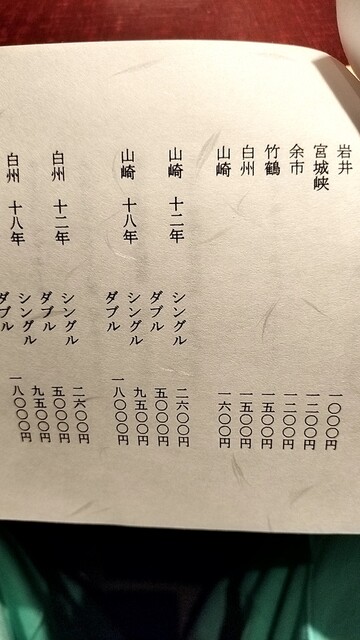 岩井 一〇〇〇円
宮城峡 一二〇〇円
余市 一二〇〇円
竹鶴 一五〇〇円
白州 一五〇〇円
山崎 一六〇〇円
山崎 十二年 シングル 二六〇〇円
ダブル 五〇〇〇円
山崎 十八年 シングル 九五〇〇円
ダブル 一八〇〇〇円
白州 十二年 シングル 二六〇〇円
ダブル 五〇〇〇円
白州 十八年 シングル 九五〇〇円
ダブル 一八〇〇〇円